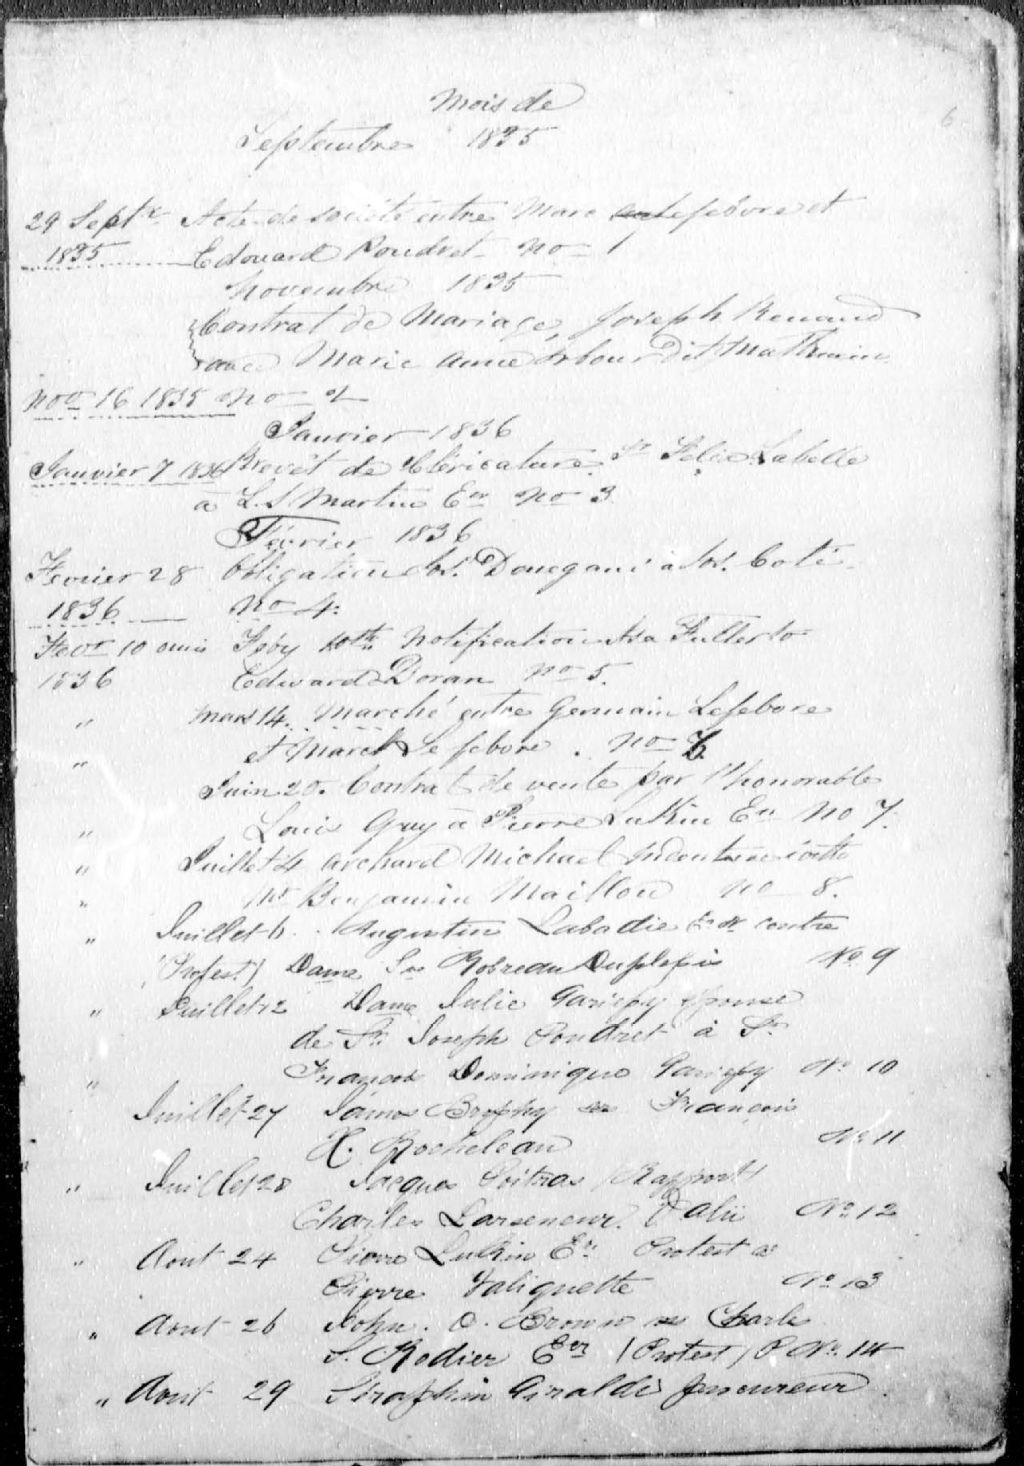 6
Mois de
Septembre 1835
29 Septr Acte de société entre Marc Lefebvre et
1835 Edouard Poudret no 1
Novembre 1835
Contrat de Mariage, Joseph Renaud
avec Marie Anne Arbour dit Mathurin
Nov 16 1835 No 2
Janvier 1836
Janvier 7 1836 Brevêt de Cléricature Sr Felix Labelle
à L. S Martin Er No 3
Février 1836
Fevrier 28 Obligation Jos. Donegani à Jos. Coté
1836 No 4
Fevr 10 omis Feby 10th Notification Asa Fuller to
1836 Edward Doran No 5.
" Mars 14. Marché entre Germain Lefebvre
" et Marc Lefebvre. No 6
Juin 20. Contrat de vente par l'honorable
" Louis Guy à Pierre Lukin Er No 7.
" Juillet 4 Archard Michael Indenture to
" Mr Benjamin Maillou no 8.
" Juillet 6. Augustin Labadie contre
(Protest) Dame Robreau Duplessis No 9
" Juillet 12 Dame Julie Gariepy épouse
de Sr Joseph Poudret à Sr
" François Dominique Gariepy No 10
Juillet 27 James Brophy vs François
H. Rocheleau No 11
" Juillet 28 Jacques Poitras (Rapport)
Charles Larseneur. No 12
" Aout 24 Pierre Lukin Er. Protest vs
Pierre Valiquette No 13
" Aout 26 John. O. Brown vs Charles
S. Rodier Er (Protest) P No 14
" Aout 29 Séraphin Giraldi procureur